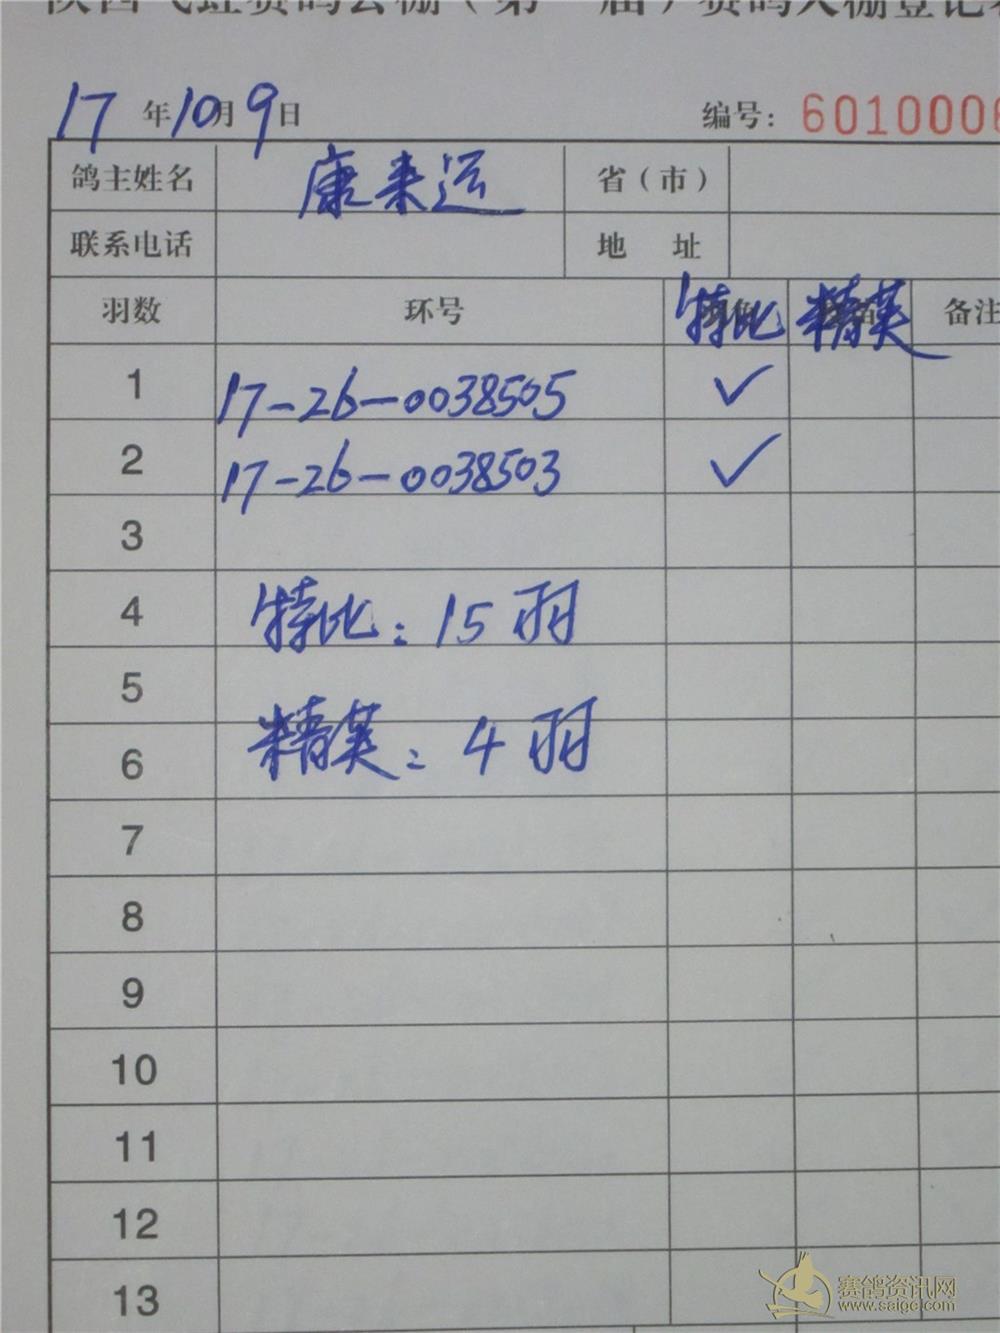 陕西 赛鸽公棚（第 届）赛鸽入棚登记
17年10月9日 编号: 6010006
鸽主姓名 康来运 省（市）
联系电话 地 址
羽数 环号 特比 精英 备注
1 17-26-0038505 ✓
2 17-26-0038503 ✓
3
4 特比: 15羽
5
6 精英: 4羽
7
8
9
10
11
12
13
赛鸽资讯网
www.saige.com